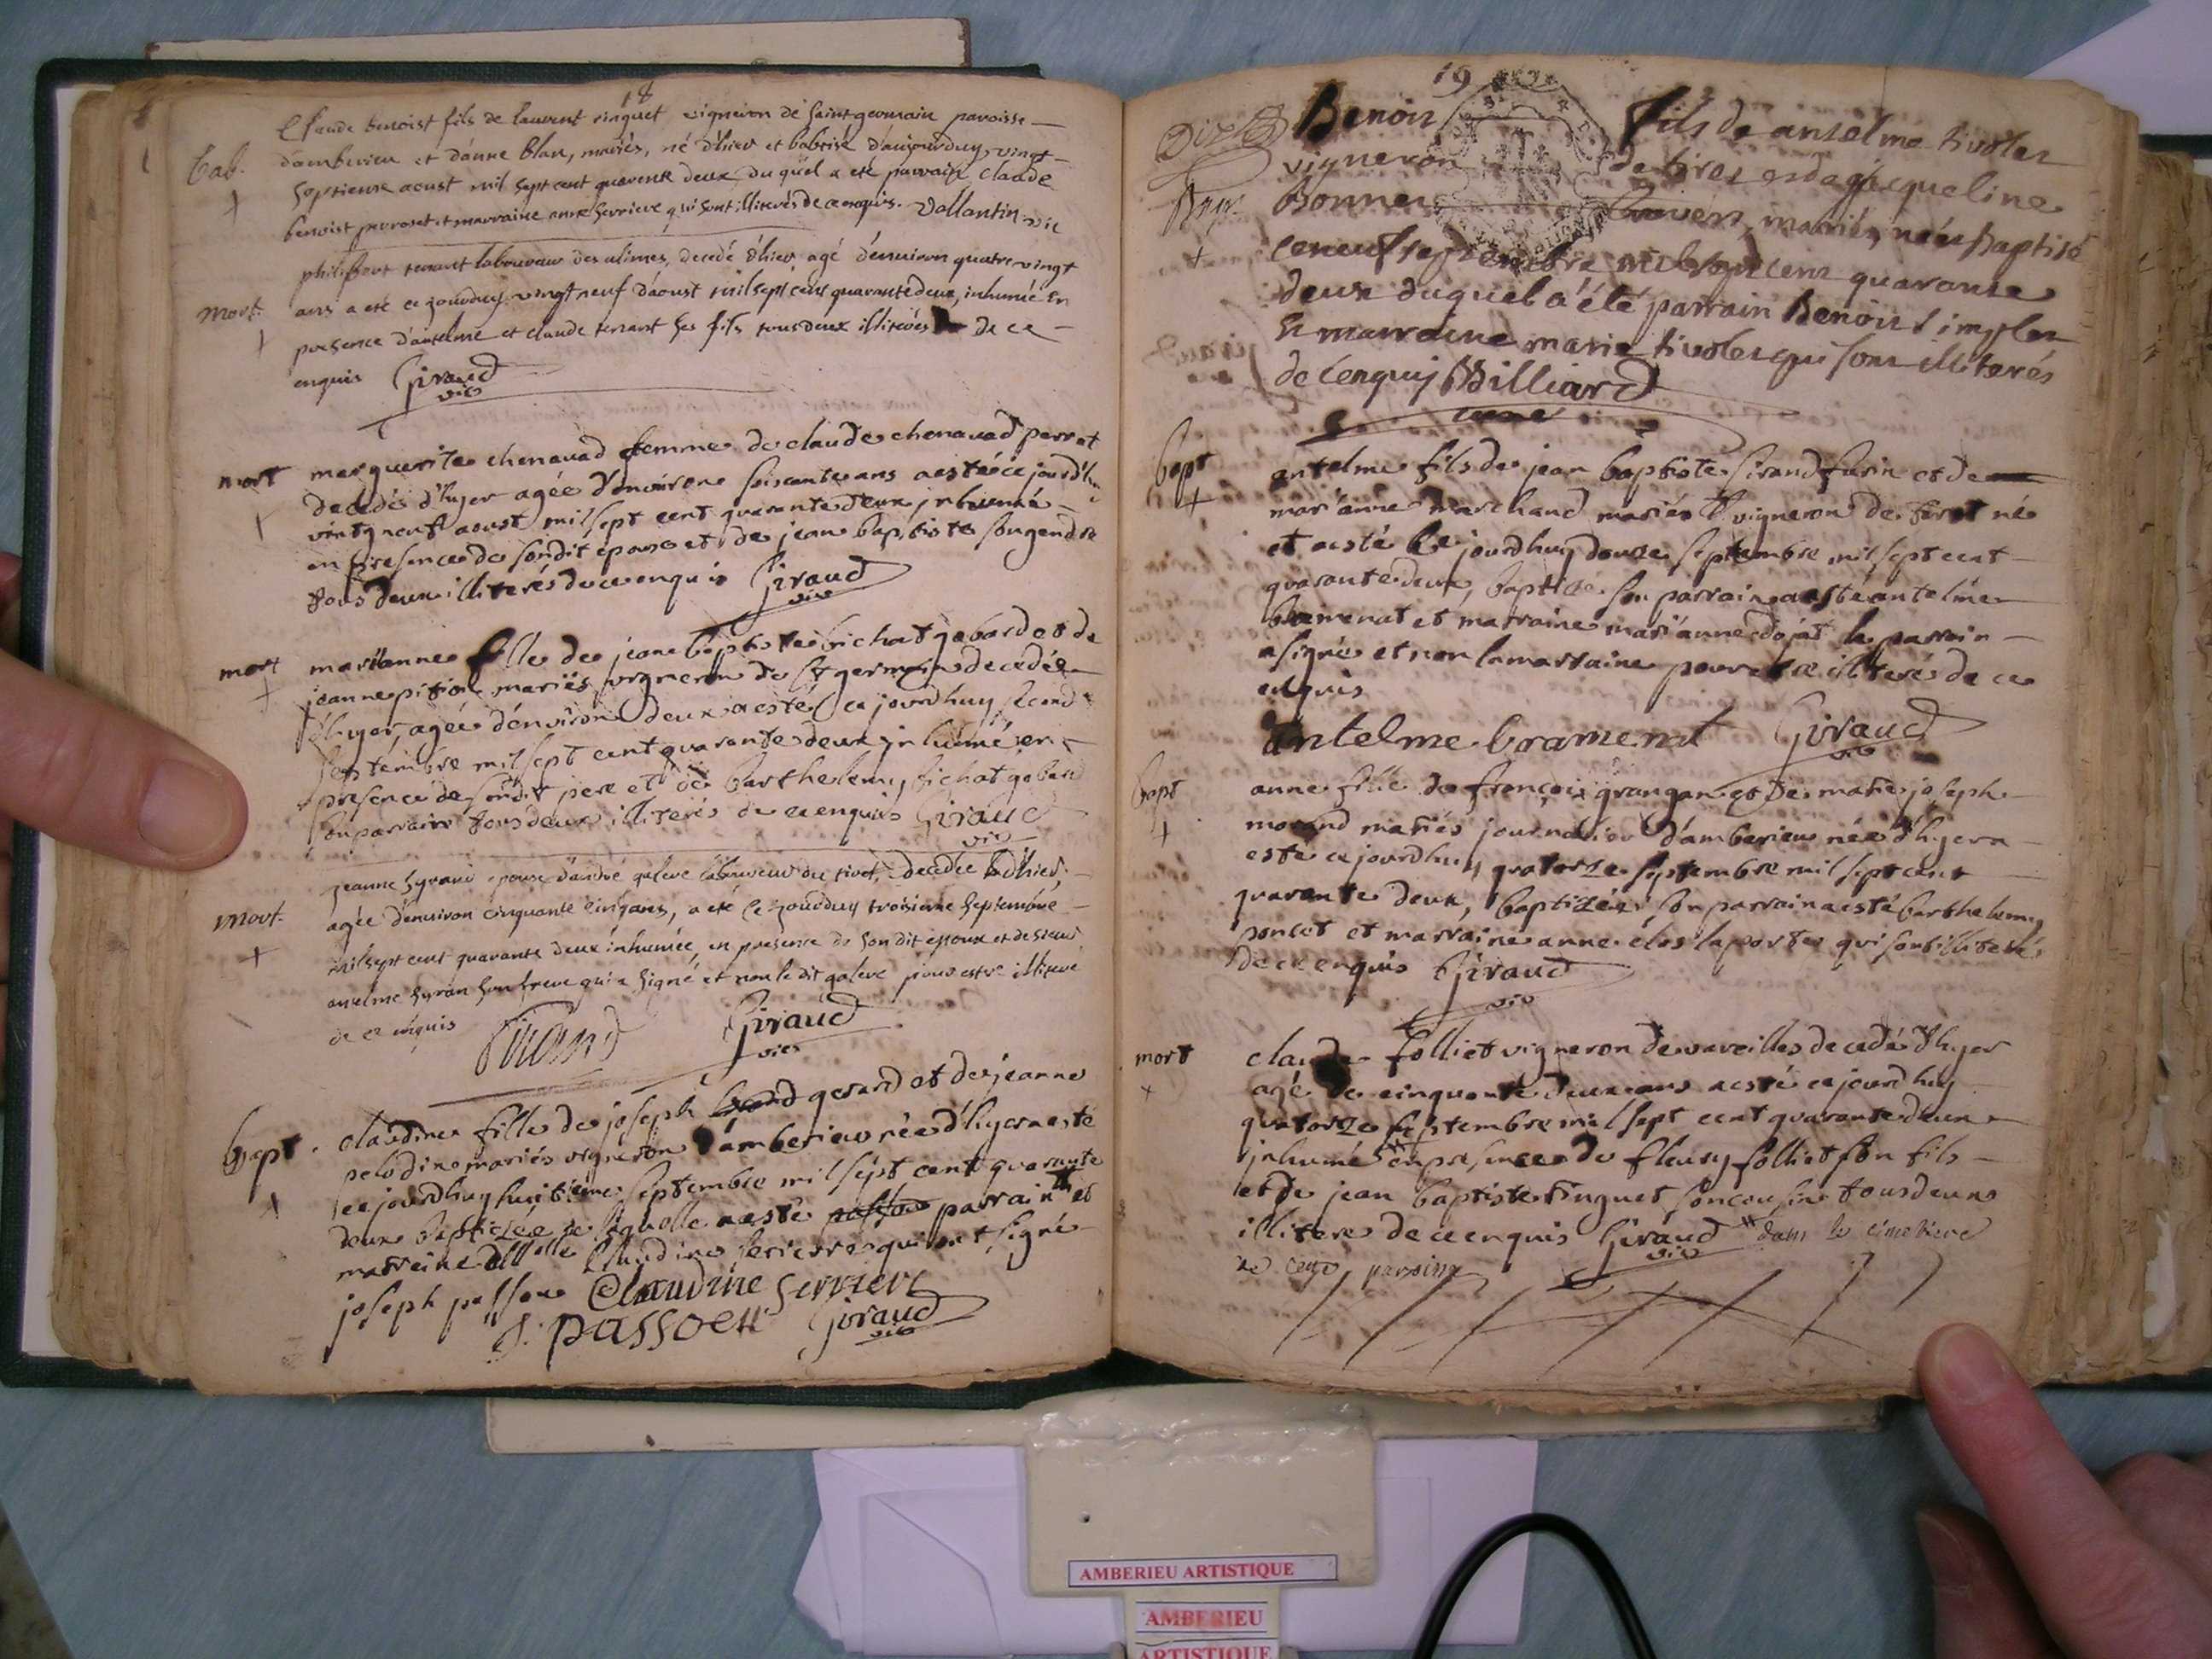 18
Claude benoist fils de laurent vigneron de saint germain paroisse
bab. d'amberieu et d'anne blan, mariés, né d'hier et babtisé d'aujourduy vingt
septieme aoust mil sept cent quarente deux, du quel a eté parrain claude
benoist et marraine anne qui sont illiterés de ce enquis.
philibert tenant laboureur des alimes, decedé d'hier agé d'environ quatre vingt
mort. ans a eté ce jourduy vingt neuf d'aoust mil sept cent quarante deux, inhumé en
presence d'antelme et claude tenant ses fils tous deux illiterés de ce
enquis Giraud
vic
mort marguerite chenavad femme de claude chenavad perret
decedée d'hyer agée d'environ soissante ans a esté ce jourd'hu
vintg neuf aoust mil sept cent quarante deux, inhumé
en presence de sondit epoux et de jean baptiste son gendre
tous deux illiterés de ce enquis Giraud
vic
mort marianne fille de jean baptiste bichat gabard et de
jeanne pition mariés vigneron de st germain decedée
d'hyer, agée d'environ deux a esté ce jourdhuy second
septembre mil sept cent quarante deux inhumé en
presence de sondit pere et de barthelemy bichat gabard
son parrain tous deux illiterés de ce enquis Giraud
vic
jeanne syrand epouse d'andré galeve laboureur du tiret, decedée d'hier,
mort. agée d'environ cinquante cinq ans, a eté ce jourduy troisieme septembre
mil sept cent quarante deux inhumée, en presence de son dit epoux et de sieur
anselme syran son frere qui a signé et non le dit galeve pour estre illiteré
de ce enquis Sirand Giraud
vic
bapt. claudine fille de joseph gerard et de jeanne
pelodin mariés vigneron d'amberieu née d'hyer a esté
ce jourdhuy huitieme septembre mil sept cent quarante
deux baptizée de laquelle a esté parrain et
marraine dlle Claudine serriere qui ont signé
joseph passou Claudine Serriere
J. passoeu Giraud
vic
19
Dizle Benoit fils de antelme tivoler
vigneron de tiret et de jacqueline
Bap. Bonne mariés, né et baptisé
ce neuf septembre mil sept cent quarante
deux duquel a été parrain Benoit simpler
et marraine marie tivoler qui sont illiterés
de ce enquis Billiard
curé
bapt antelme fils de jean baptiste sirand farin et de
marianne marchand mariés vigneron de tiret né
et a esté ce jourdhuy douze septembre mil sept cent
quarante deux, baptizé son parrain a esté antelme
bramenat et marraine marianne dojat le parrain
a signé et non la marraine pour estre illiteré de ce
enquis
antelme bramenat Giraud
vic
bapt anne fille de françois grangan et de marie joseph
morand mariés journalier d'amberieu née d'hyer a
esté ce jourdhuy quatorze septembre mil sept cent
quarante deux, baptizée son parrain a esté barthelemy
poncet et marraine anne clos laporte qui sont illiterés
de ce enquis Giraud
vic
mort claude folliet vigneron de vareilles decedé d'hyer
agé de cinquante deux ans a esté ce jourdhuy
quatorze septembre mil sept cent quarante deux
inhumé en presence de fleury folliet son fils
et de jean baptiste tinguet son cousin tous deux
illitere de ce enquis Giraud dans le cimetiere
de cette paroisse vic
AMBERIEU ARTISTIQUE
AMBERIEU
ARTISTIQUE